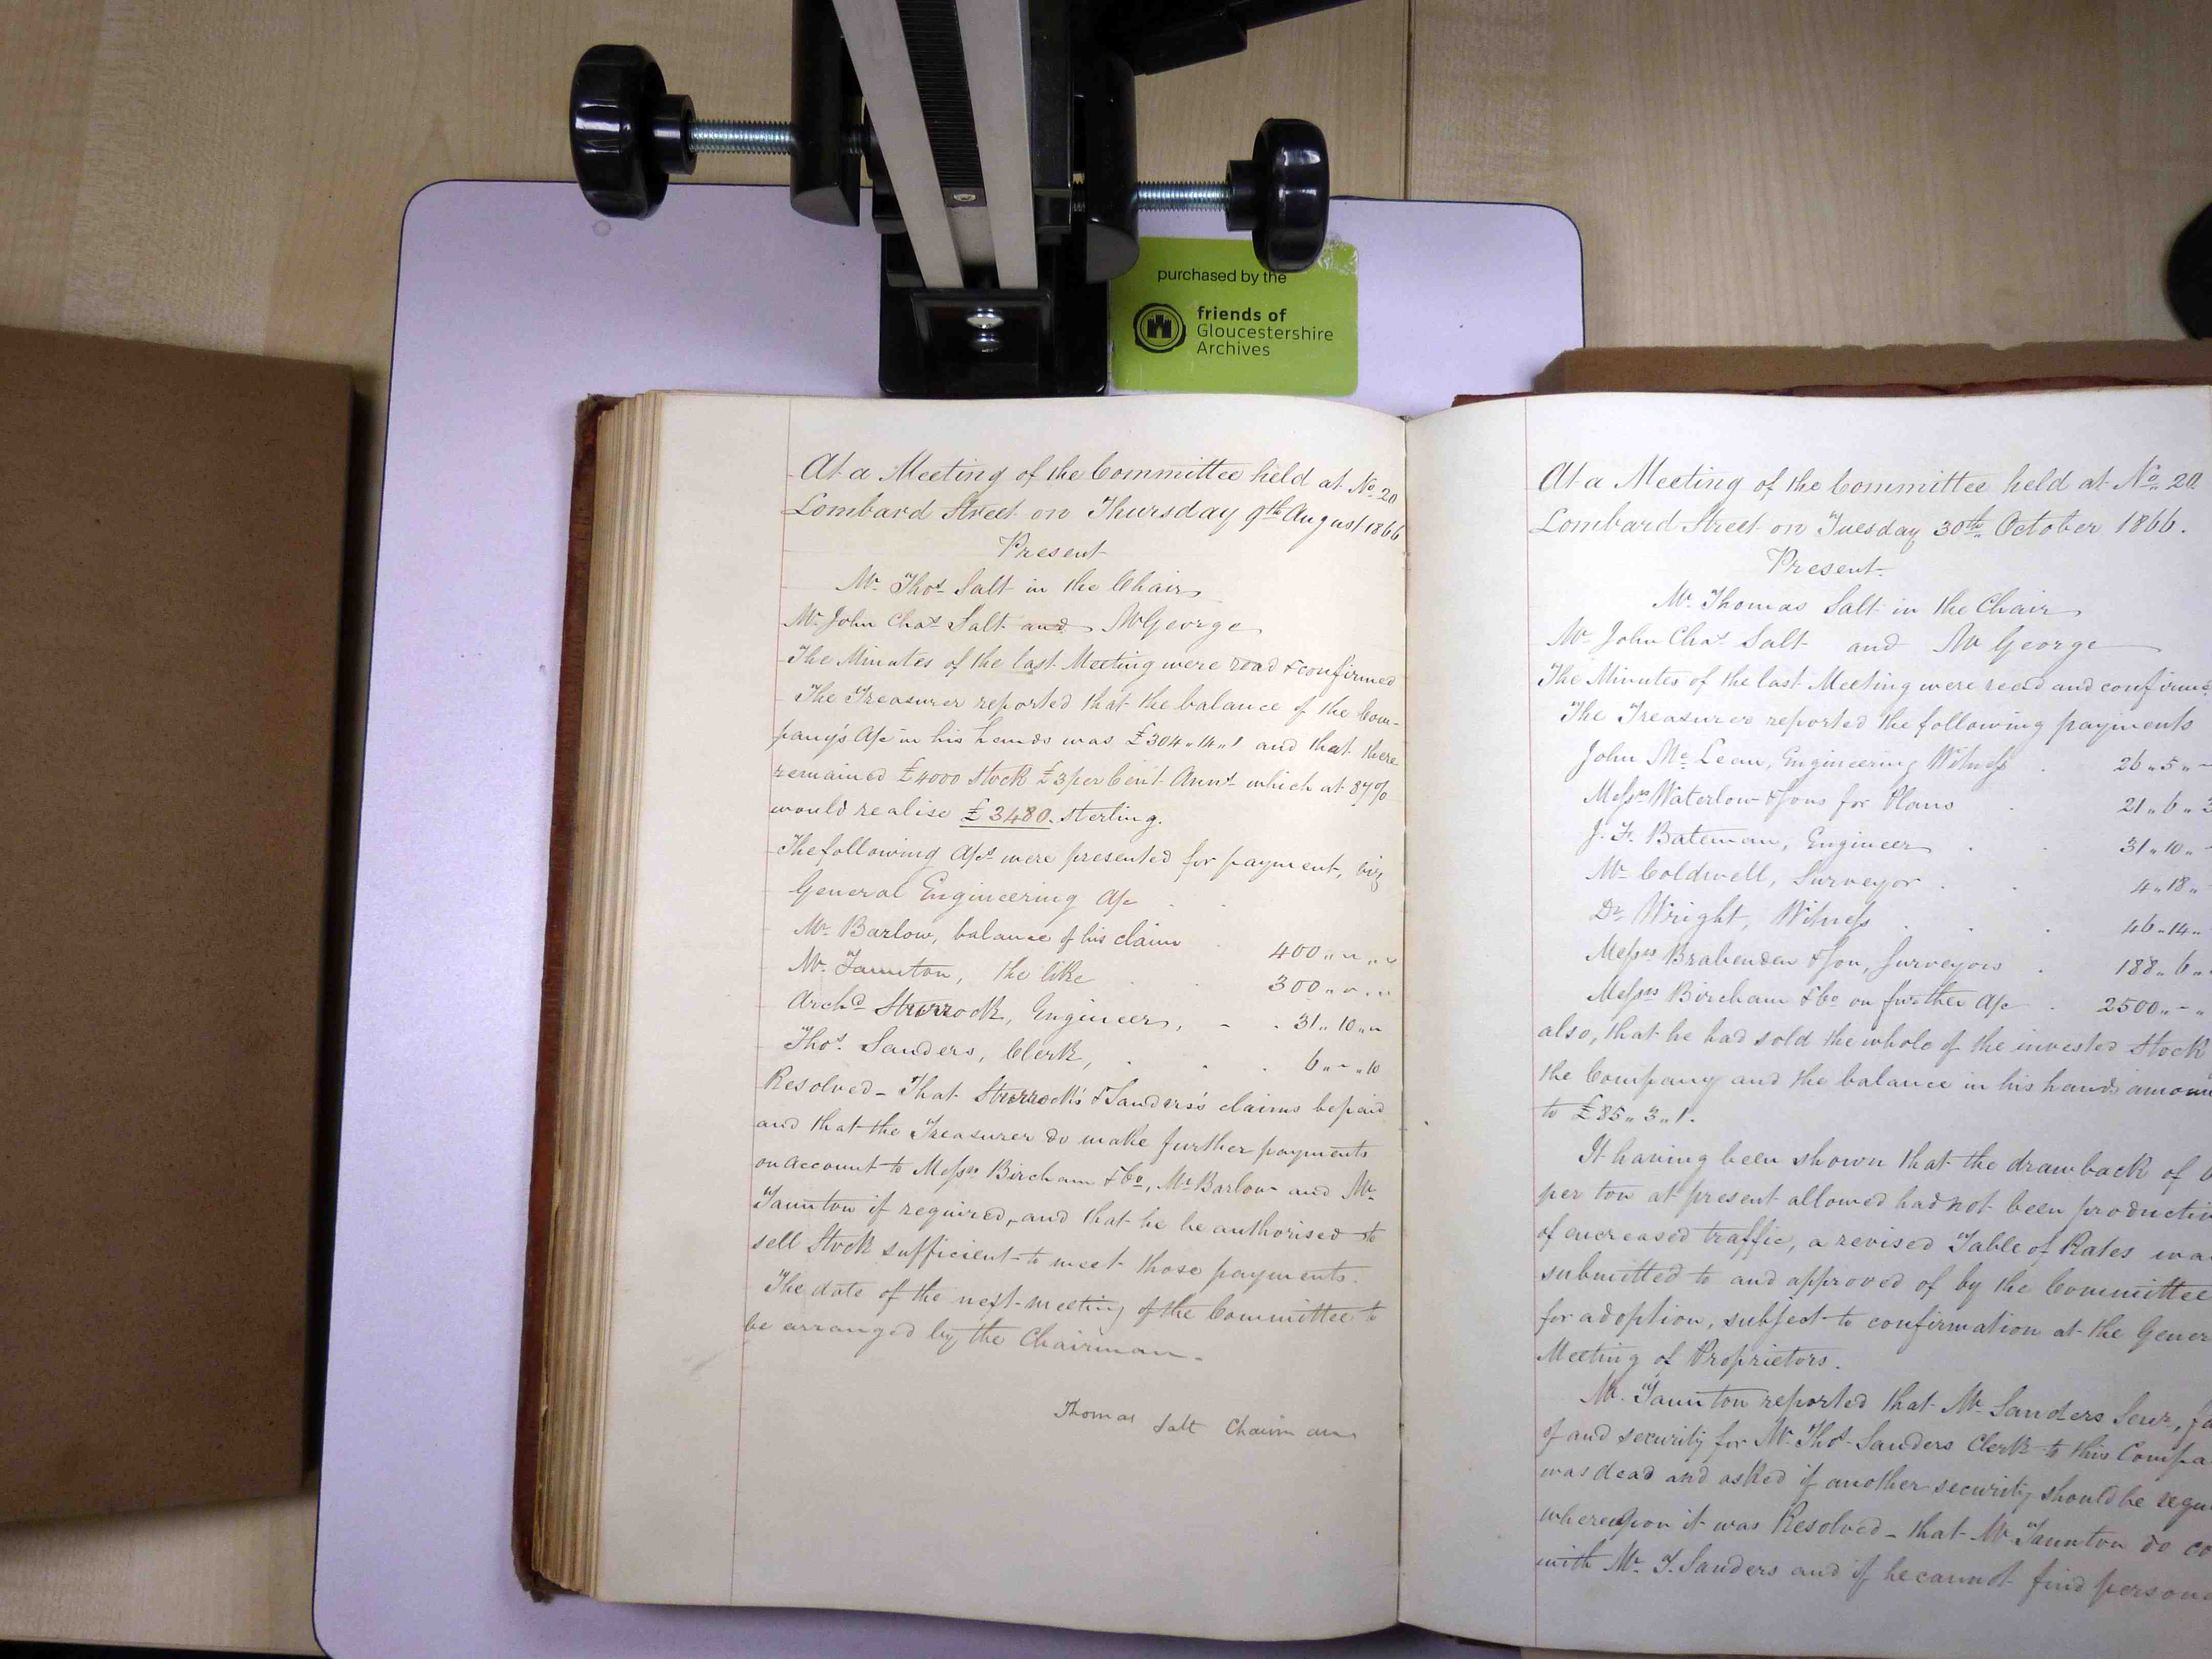 purchased by the
friends of
Gloucestershire
Archives
At a Meeting of the Committee held at No. 20
Lombard Street on Thursday 9th August 1866
Present
Mr. Thos. Salt in the Chair
Mr. John Chas. Salt and Mr George
The Minutes of the last Meeting were read & confirmed
The Treasurer reported that the balance of the Com-
pany's A/c in his hands was £304..14..1 and that there
remained £4000 Stock £3 per Cent Anns. which at 87%
would realise £3480. sterling.
The following A/cs were presented for payment, viz
General Engineering A/c
Mr. Barlow, balance of his claim 400..
Mr. Taunton, the like 300..
Archd. Sturrock, Engineer, 31..10..
Thos. Sanders, Clerk, 6..-..10
Resolved - That Sturrock's & Sanders's claims be paid
and that the Treasurer do make further payments
on account to Messrs Bircham & Co., Mr Barlow and Mr.
Taunton if required, and that he be authorised to
sell Stock sufficient to meet those payments.
The date of the next meeting of the Committee to
be arranged by the Chairman.
Thomas Salt Chairman
At a Meeting of the Committee held at No. 20
Lombard Street on Tuesday 30th October 1866.
Present
Mr. Thomas Salt in the Chair
Mr John Chas. Salt and Mr George
The Minutes of the last Meeting were read and confirme
The Treasurer reported the following payments
John Mc. Lean, Engineering Witness 26..5..-
Messrs Waterlow & Sons for Plans 21..6..3
J. F. Bateman, Engineer 31..10..-
Mr Coldwell, Surveyor 4..18..-
Dr Wright, Witness 46..14..
Messrs Brabender & Son, Surveyors 188..6..
Messrs Bircham & Co. on further A/c 2500..-..
also, that he had sold the whole of the invested Stock
the Company and the balance in his hands amou
to £85..3..1.
It having been shown that the drawback of
per ton at present allowed had not been producti
of encreased traffic, a revised Table of Rates wa
submitted to and approved of by the Committee
for adoption, subject to confirmation at the Gener
Meeting of Proprietors.
Mr. Taunton reported that Mr Sanders Senr, fa
of and security for Mr. Thos. Sanders Clerk to this Compa
was dead and asked if another security should be requ
whereupon it was Resolved - that Mr Taunton do co
with Mr. T. Sanders and if he cannot find person